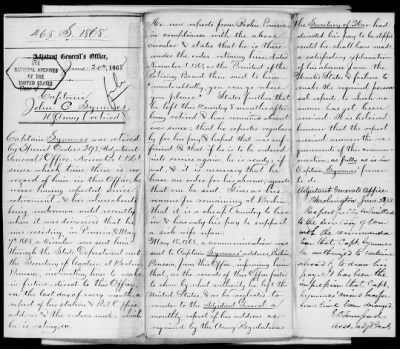 468 S. 1868
Adjutant General's Office,
June 20th, 1868
NATIONAL ARCHIVES
OF THE
UNITED STATES
Captain
John C Symmes
U.S. Army (retired)
Captain Symmes was retired
by Special Order 293, Adjutant
General's Office, November 1, 1861
since which time there is no
record of him in this Office, he
never having reported since
retirement, & his whereabouts
being unknown until recently
when it was discovered that he
was residing in Prussia. May
7th 1868, a Circular was sent him
through the State Department and
the Secretary of Legation at Berlin
Prussia, instructing him to make
in future, direct to this Office,
on the last day of every month, a
report of his station & Post Office
address & the orders under which
he is acting.
He now reports from Berlin Prussia
in compliance with the above
circular & states that he is there
under the order retiring him, dated
November 1, 1861, as the President of the
Retiring Board then said to him
"undoubtedly, you can go where
you please." States further that
he left this Country 8 months after
being retired & has remained absent
ever since; that he reports regularly
for his pay & hoped that was suf-
ficient & that if he is to be ordered
into service again, he is ready; if
not, & it is necessary that he
have orders for his absence, requests
that one be sent. Gives as his
reason for remaining at Berlin
that it is a cheap Country to live
in & has only his pay to support
a sick wife upon.
May 18, 1868, a communication was
sent to Captain Symmes' address, Berlin
Prussia, from this Office informing him
that, as the records of this Office failed
to show by what authority he left the
United States, & as he neglected
to render to the Adjutant General a
monthly report of his address as
required by the Army Regulations
the Secretary of War had
directed his pay to be stopped
until he shall have made
a satisfactory explanation
of his absence from the
United States & failure to
make the required person-
al report, to which no
answer has yet been
received. It is believed
however that the report
received answers the
question, as fully as is in
Captain Symmes' power
to do.
Adjutant General's Office
Washington, June 20, 1868
Respectfully submitted
to the Secretary of War
with the recommenda-
tion that Capt Symmes
be authorized to continue
abroad & to draw his
pay. It has been the
misfortune of Capt.
Symmes' mind has for
some time been deranged
E D Townsend
Asst. Adjt. Genl.